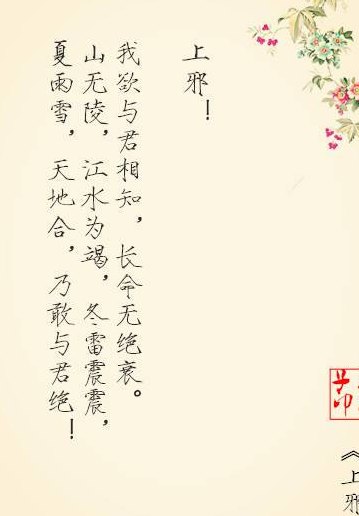 《上邪
上邪！
我欲与君相知，长命无绝衰。
山无陵，江水为竭，冬雷震震，
夏雨雪，天地合，乃敢与君绝！